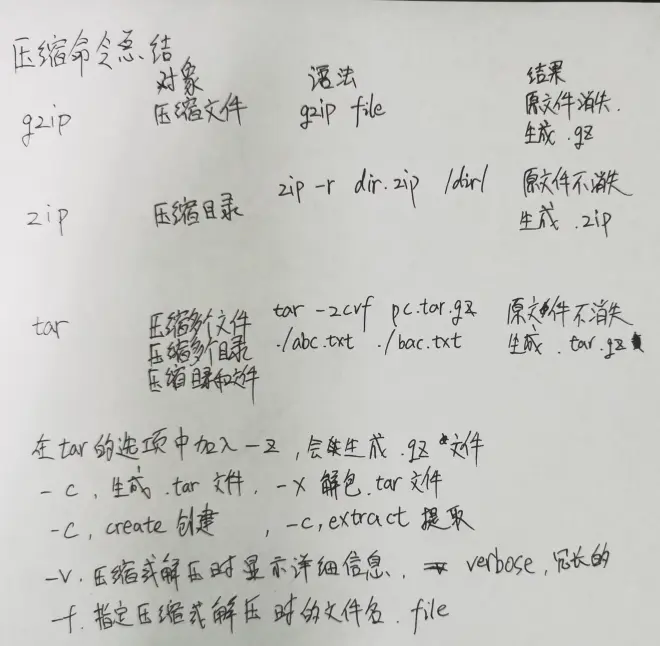 压缩命令总结
对象 语法 结果
gzip 压缩文件 gzip file 原文件消失.
生成 .gz
zip 压缩目录 zip -r dir.zip /dir/ 原文件不消失
生成 .zip
tar 压缩多个文件 tar -zcvf pc.tar.gz 原文件不消失
压缩多个目录 ./abc.txt ./bac.txt 生成 .tar.gz
压缩目录和文件
在tar的选项中加入 -z , 会生成 .gz 文件
- c , 生成 .tar 文件 , - x 解包 .tar 文件
-c, create 创建 , -c, extract 提取
-v. 压缩或解压时显示详细信息, verbose, 冗长的
-f. 指定压缩或解压时的文件名. file